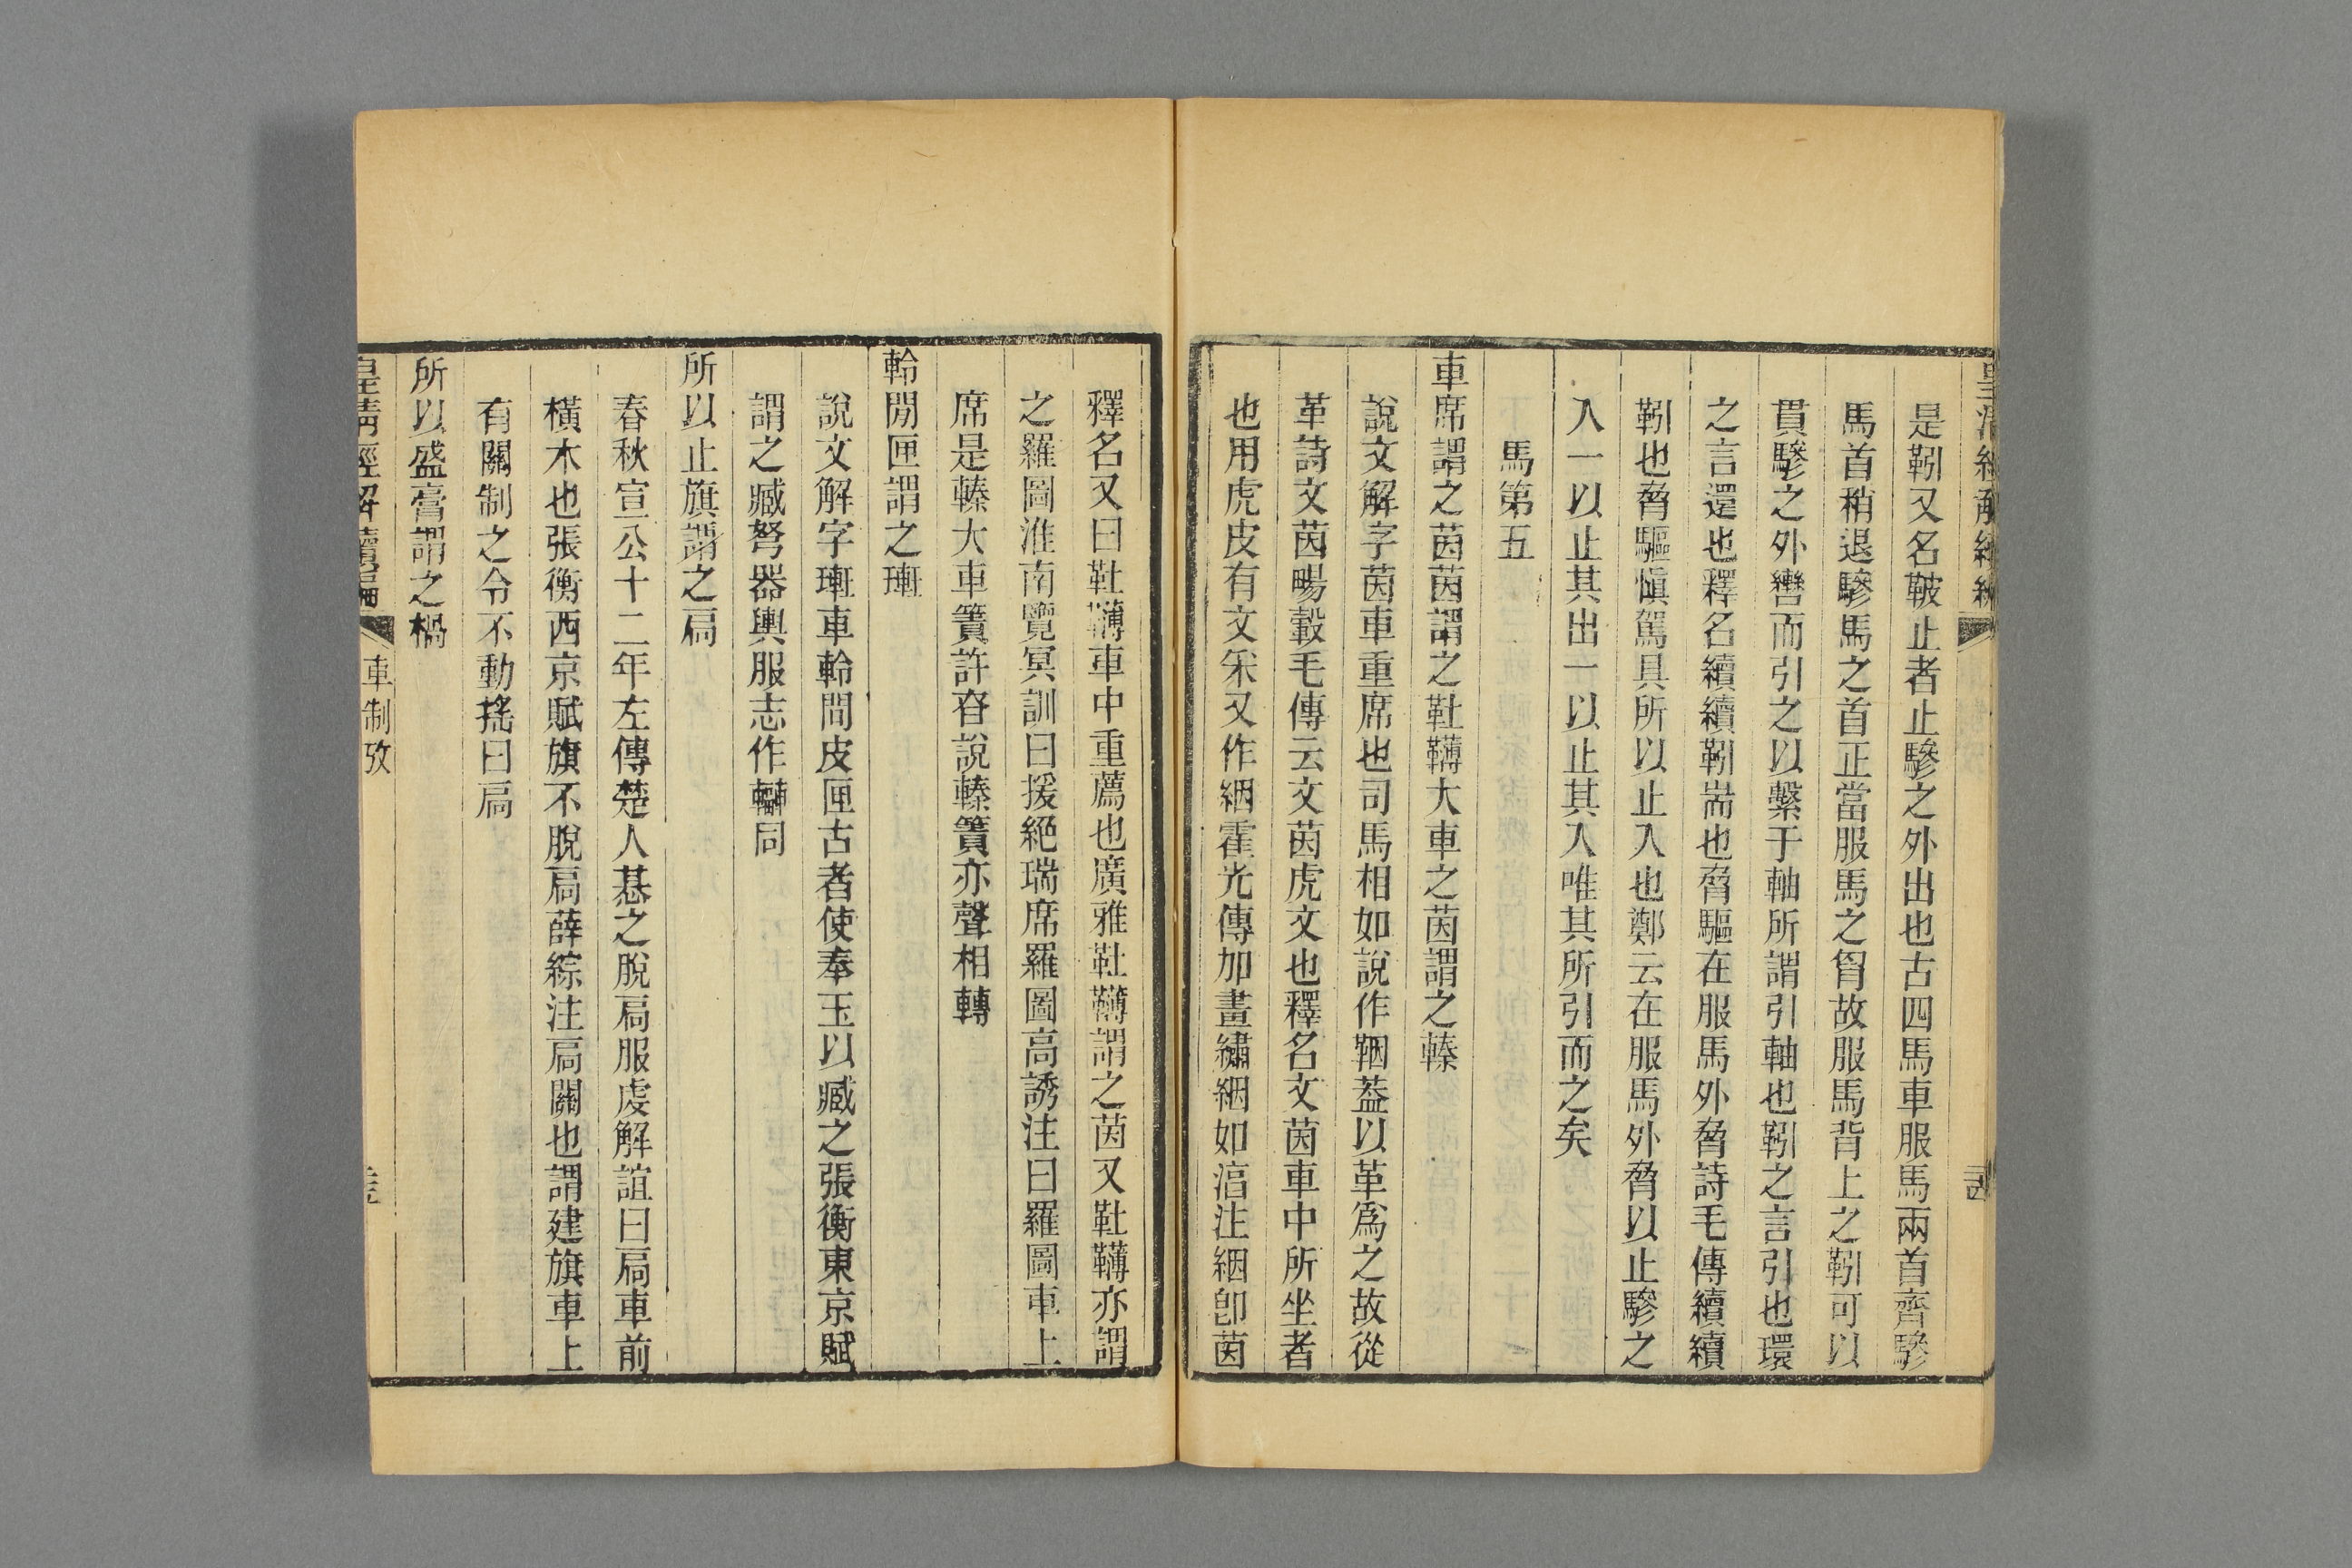 是靷又名鞁止者止驂之外出也古四馬車服馬兩首齊驂
馬首稍退驂馬之首正當服馬之胷故服馬背上之靷可以
貫驂之外轡而引之以繫于軸所謂引軸也靷之言引也環
之言還也釋名續續靷耑也脅驅在服馬外脅詩毛傳續續
靷也脅驅愼駕具所以止入也鄭云在服馬外脅以止驂之
入一以止其出一以止其入唯其所引而之矣
馬第五
車席謂之茵茵謂之靯䪙大車之茵謂之轃
說文解字茵車重席也司馬相如說作鞇葢以革爲之故從
革詩文茵暢轂毛傳云文茵虎文也釋名文茵車中所坐者
也用虎皮有文采又作絪霍光傳加畫繡絪如湻注絪卽茵
釋名又曰靯䪙車中重薦也廣雅靯䪙謂之茵又靯䪙亦謂
之羅圖淮南覽冥訓曰援絕瑞席羅圖高誘注曰羅圖車上
席是轃大車簀許昚說轃簀亦聲相轉
軨閒匣謂之㻮
說文解字㻮車軨問皮匣古者使奉玉以臧之張衡東京賦
謂之臧弩器輿服志作轓同
所以止旗謂之扃
春秋宣公十二年左傳楚人惎之脫扃服虔解誼曰扃車前
橫木也張衡西京賦旗不脫扃薛綜注扃關也謂建旗車上
有關制之令不動搖曰扃
所以盛膏謂之楇
皇淸經解續編
車制攷